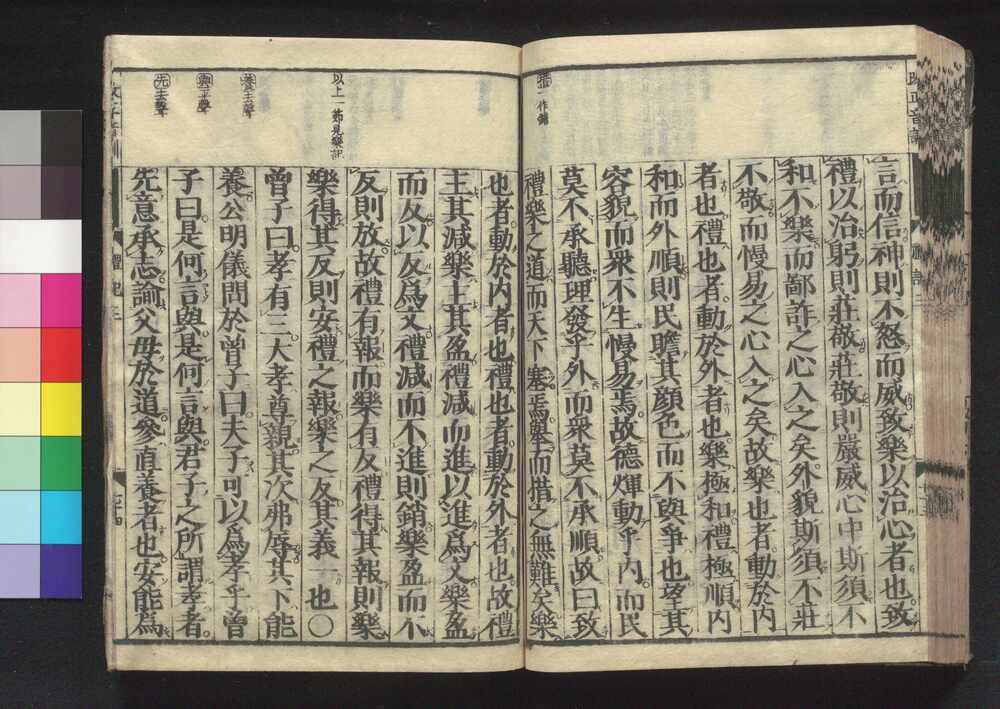 言而信神則不怒而威致樂以治心者也致
禮以治躬則莊敬莊敬則嚴威心中斯須不
和不樂而鄙詐之心入之矣外貌斯須不莊
不敬而慢易之心入之矣故樂也者動於内
者也禮也者動於外者也樂極和禮極順内
和而外順則民瞻其顔色而不與爭也望其
容貌而衆不生慢易焉故德煇動乎内而民
莫不承聽理發乎外而衆莫不承順故曰致
一作錯
禮樂之道而天下塞焉舉而措之無難矣樂
也者動於内者也禮也者動於外者也故禮
主其減樂主其盈禮減而進以進爲文樂盈
而反以反爲文禮減而不進則銷樂盈而不
以上一節見樂記
反則放故禮有報而樂有反禮得其報則樂
樂得其反則安禮之報樂之反其義一也〇
曾子曰孝有三大孝尊親其次弗辱其下能
養去聲
養公明儀問於曾子曰夫子可以爲孝乎曾
與平聲
子曰是何言與是何言與君子之所謂孝者
先去聲
先意承志諭父母於道參直養者也安能爲
禮記三